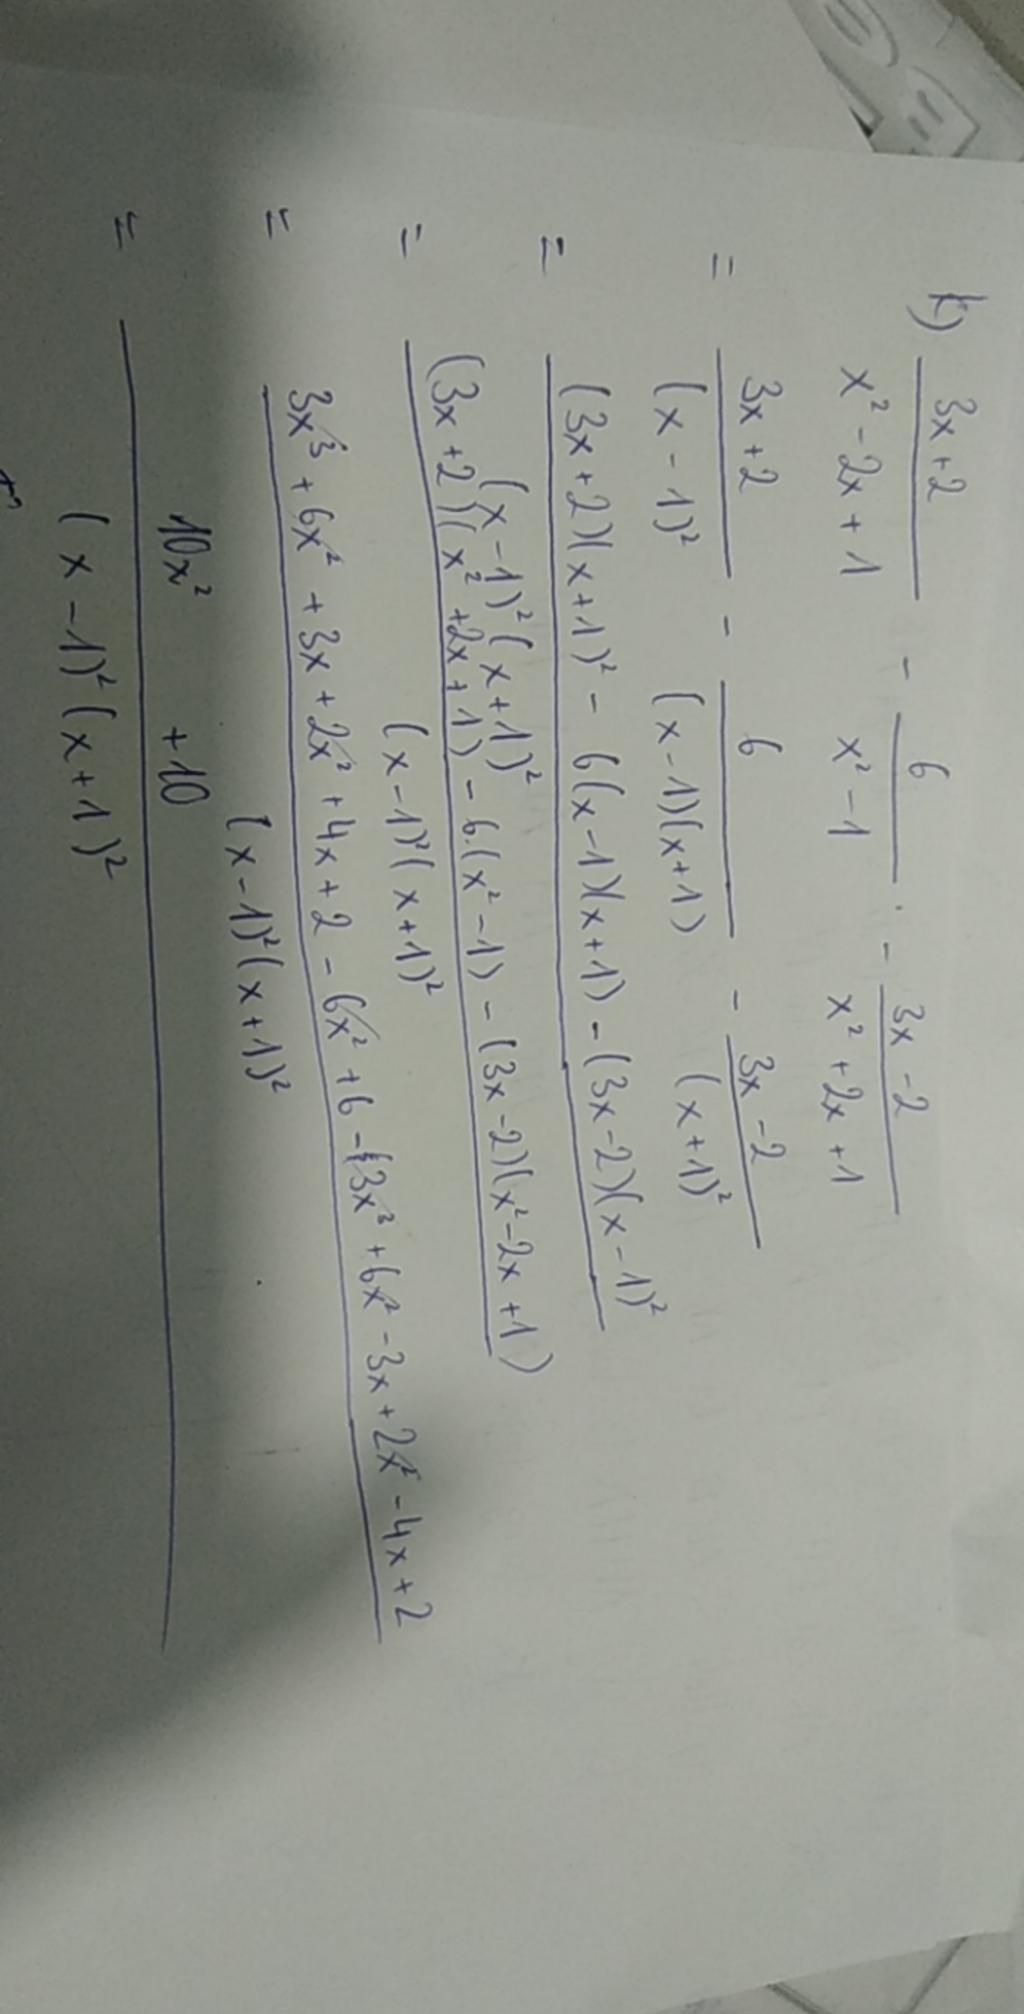 k) 3x+2 / x² - 2x + 1 - 6 / x² - 1 · - 3x - 2 / x² + 2x + 1
= 3x + 2 / (x - 1)² - 6 / (x - 1)(x+1) - 3x - 2 / (x + 1)²
= (3x + 2)(x+1)² - 6(x - 1)(x+1) - (3x - 2)(x - 1)²
(x - 1)² (x + 1)²
= (3x + 2)(x² + 2x + 1) - 6.(x² - 1) - (3x - 2)(x² - 2x + 1)
(x - 1)² (x + 1)²
= 3x³ + 6x² + 3x + 2x² + 4x + 2 - 6x² + 6 - 3x³ + 6x² - 3x + 2x² - 4x + 2
(x - 1)² (x + 1)²
= 10x² + 10
(x - 1)² (x + 1)²